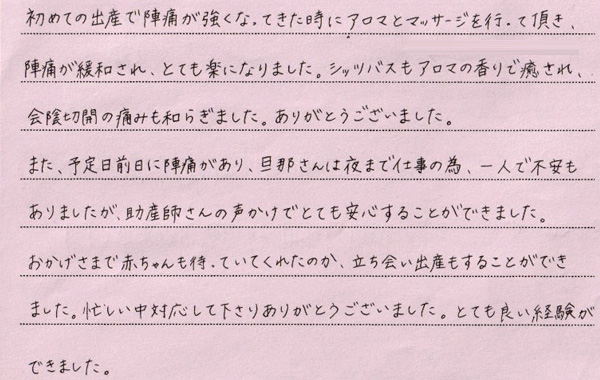 初めての出産で陣痛が強くなってきた時にアロマとマッサージを行って頂き、
陣痛が緩和され、とても楽になりました。シッツバスもアロマの香りで癒され、
会陰切開の痛みも和らぎました。ありがとうございました。
また、予定日前日に陣痛があり、旦那さんは夜まで仕事の為、一人で不安も
ありましたが、助産師さんの声かけでとても安心することができました。
おかげさまで赤ちゃんも待っていてくれたのか、立ち会い出産もすることができ
ました。忙しい中対応して下さりありがとうございました。とても良い経験が
できました。